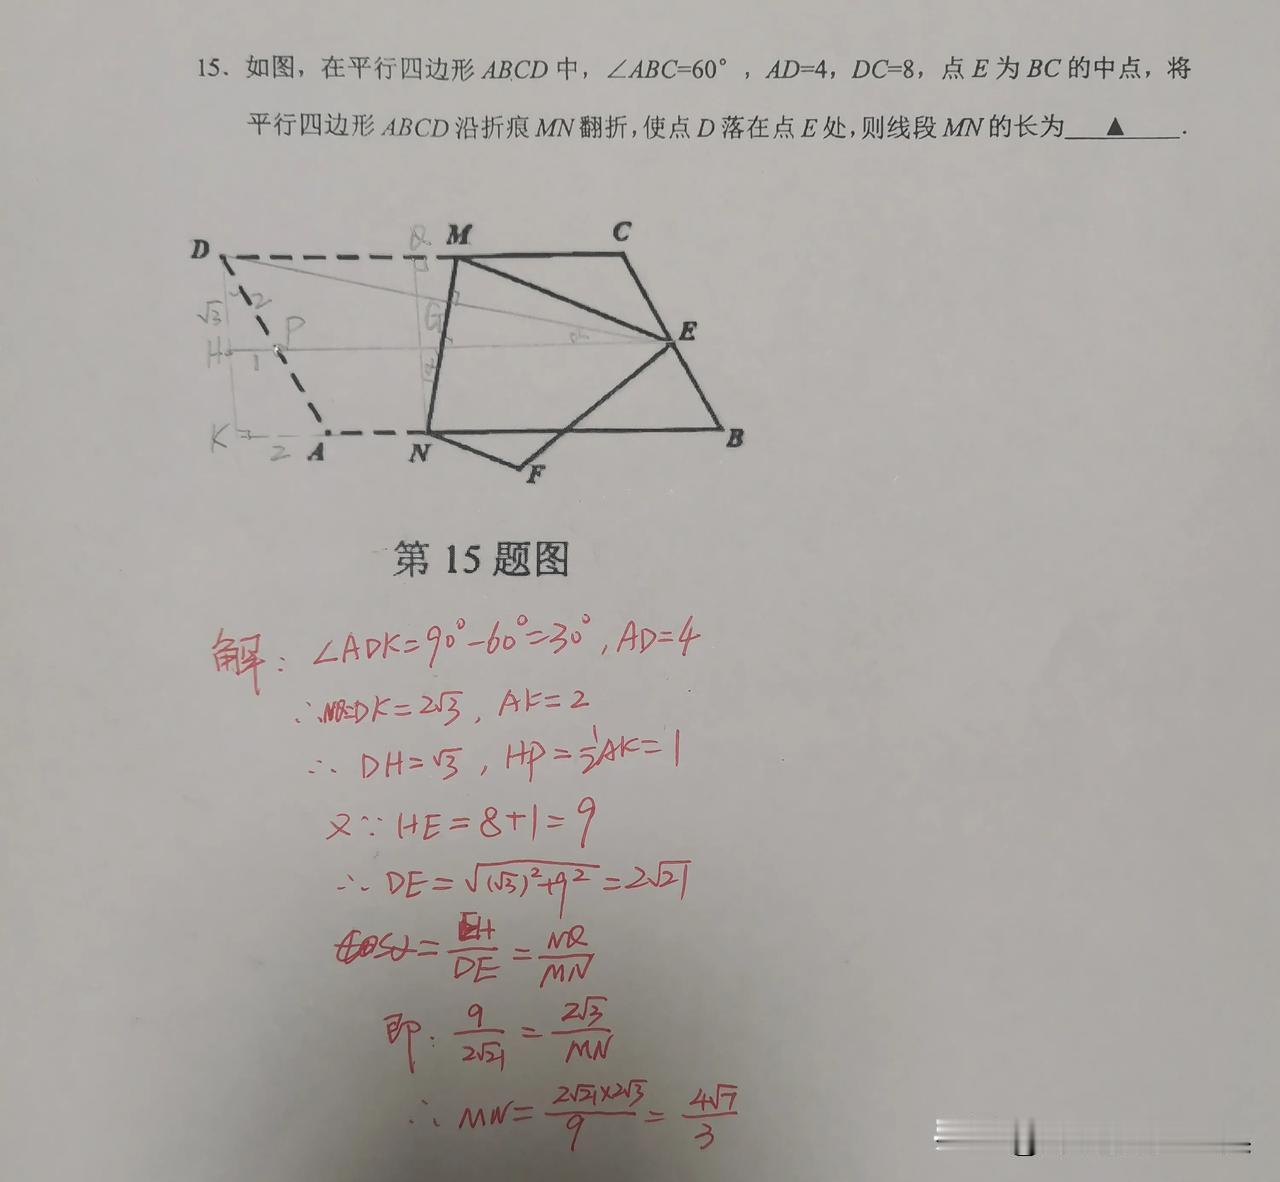 15. 如图，在平行四边形ABCD中，∠ABC=60°，AD=4，DC=8，点E为BC的中点，将
平行四边形ABCD沿折痕MN翻折，使点D落在点E处，则线段MN的长为___▲___.
D Q M C
√3 2 G
H 1 P α E
K 2 A N F B
第15题图
解：∠ADK=90°-60°=30°，AD=4
∴DK=2√3，AK=2
∴ DH=√3，HP=½AK=1
又∵HE=8+1=9
∴ DE=√((√3)²+9²)=2√21
cosα=EH/DE=NQ/MN
即：9/2√21=2√3/MN
∴ MN=2√21×2√3/9=4√7/3